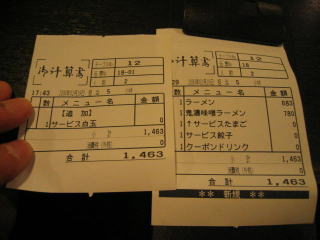 御計算書
テーブルNo. 12
18-01
17:43
数 メニュー名 金額
【追加】
1 サービス白玉 0
小計 1,463
0
合計 1,463
計算書
12
数 メニュー名 金額
1 ラーメン 683
1 鬼濃味噌ラーメン 780
1 ↑サービスたまご 0
1 サービス餃子 0
1 クーポンドリンク 0
小計 1,463
0
合計 1,463
** 新規 **